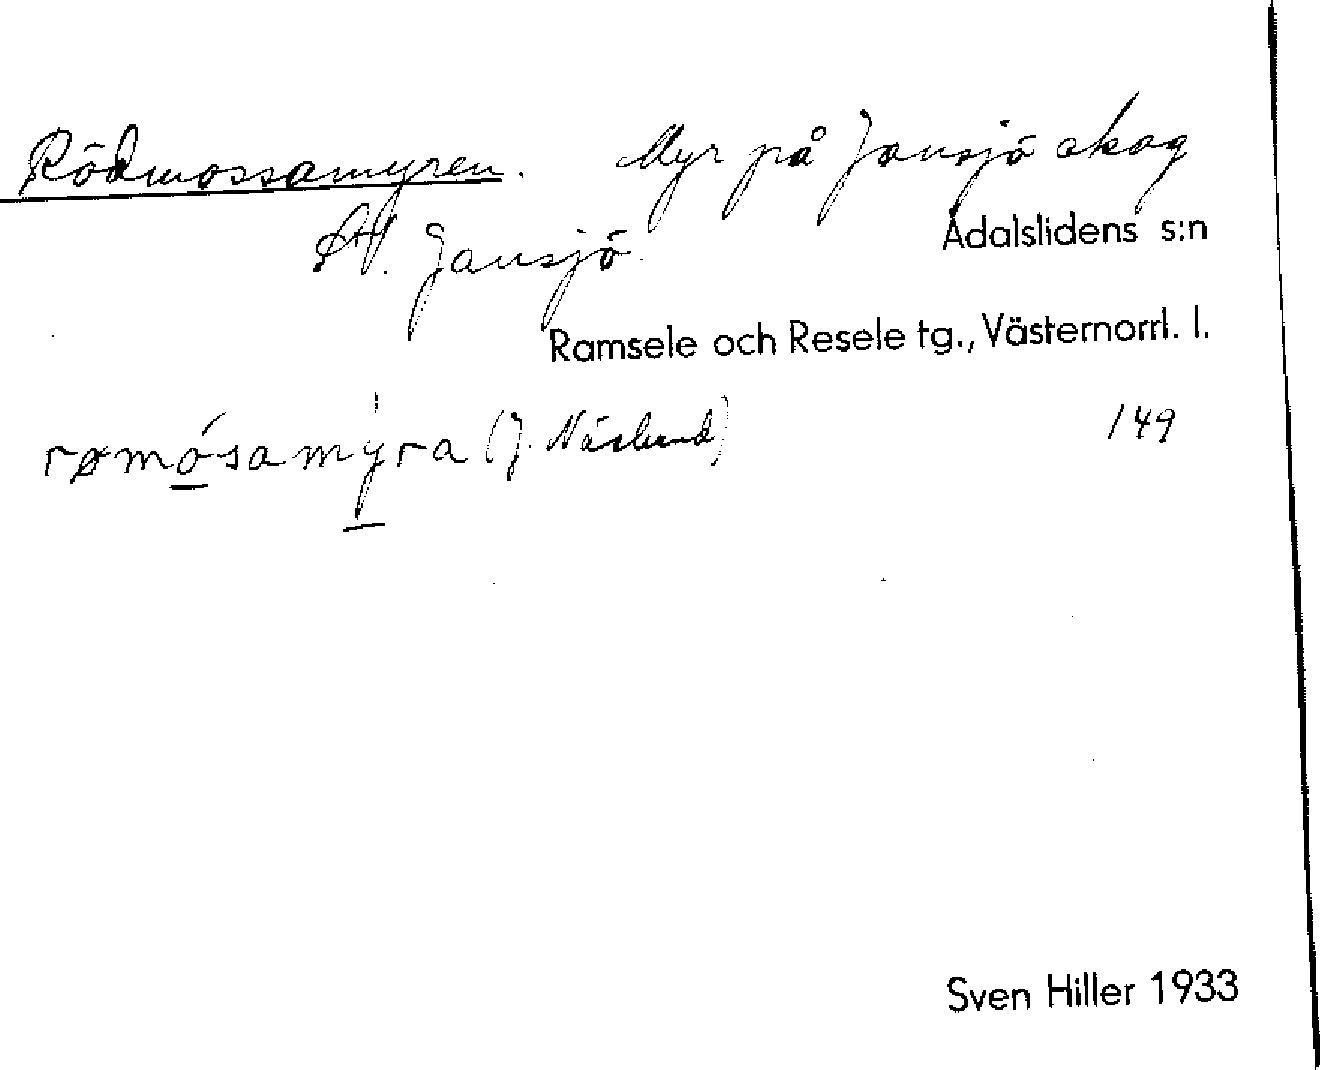 Rödmossamyren. Myr på Jansjö skog
St. Jansjö. Ådalslidens s:n
Ramsele och Resele tg., Västernorrl. l.
rømósamýra (J. Näslund) 149
Sven Hiller 1933